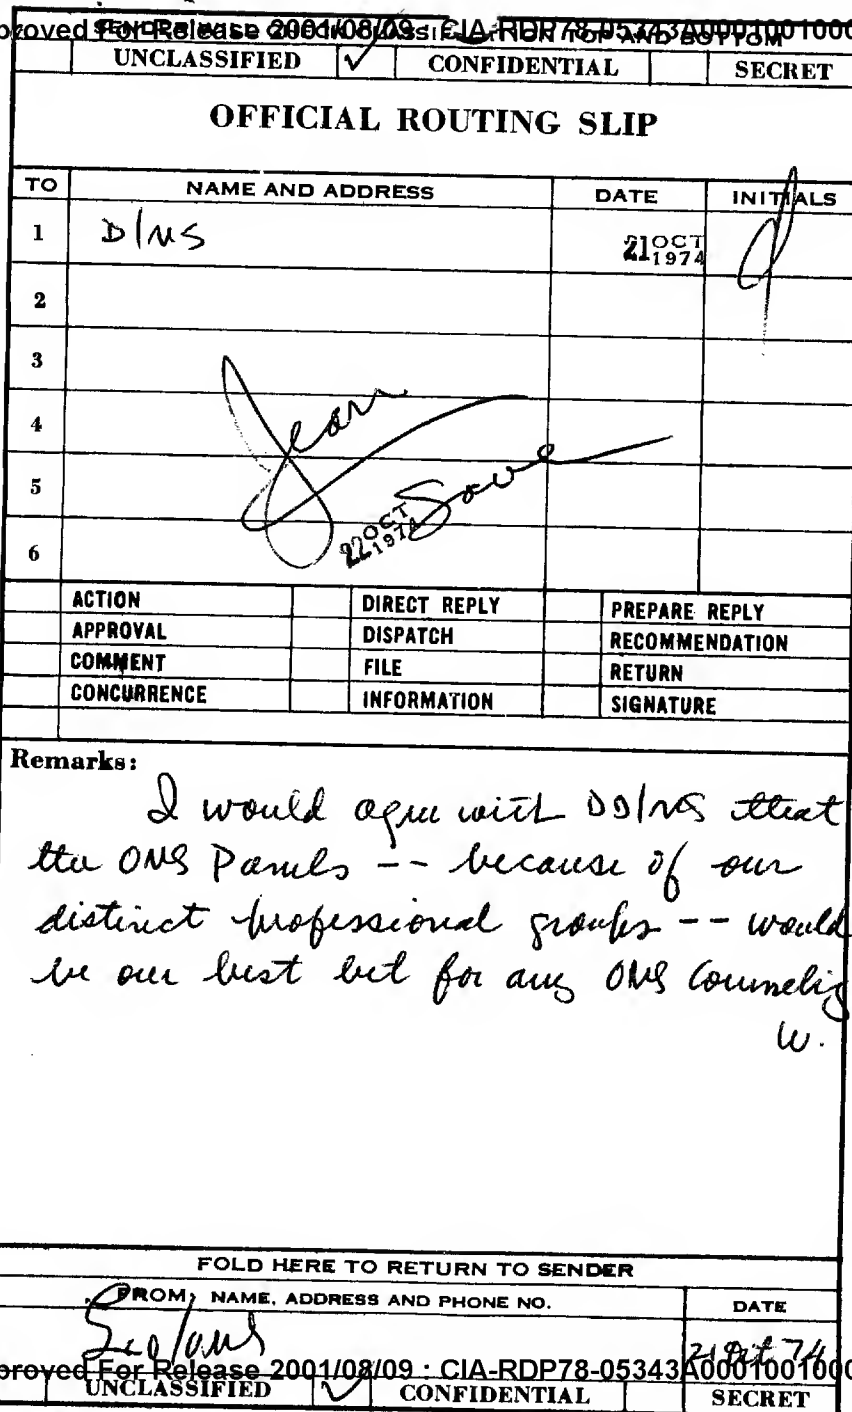 SENDER WILL CHECK CLASSIFICATION TOP AND BOTTOM
proved For Release 2001/08/09 : CIA-RDP78-05343A0001001000
UNCLASSIFIED ✓ CONFIDENTIAL SECRET
OFFICIAL ROUTING SLIP
TO NAME AND ADDRESS DATE INITIALS
1 D/MS 21 OCT 1974
2
3
4 Jean
5 Save
22 OCT 1974
6
ACTION DIRECT REPLY PREPARE REPLY
APPROVAL DISPATCH RECOMMENDATION
COMMENT FILE RETURN
CONCURRENCE INFORMATION SIGNATURE
Remarks:
I would agree with DD/MS that
the OMS Panels -- because of our
distinct professional groups -- would
be our best bet for any OMS Counselig
W.
FOLD HERE TO RETURN TO SENDER
FROM: NAME, ADDRESS AND PHONE NO. DATE
21 Oct 74
proved For Release 2001/08/09 : CIA-RDP78-05343A0001001000
UNCLASSIFIED ✓ CONFIDENTIAL SECRET